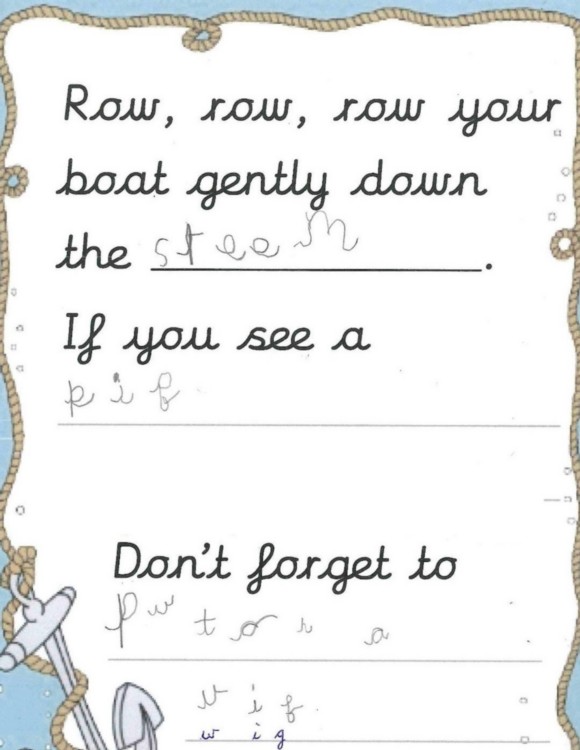 Row, row, row your
boat gently down
the steem.
If you see a
pif
Don't forget to
Pw t or a
vif
wig